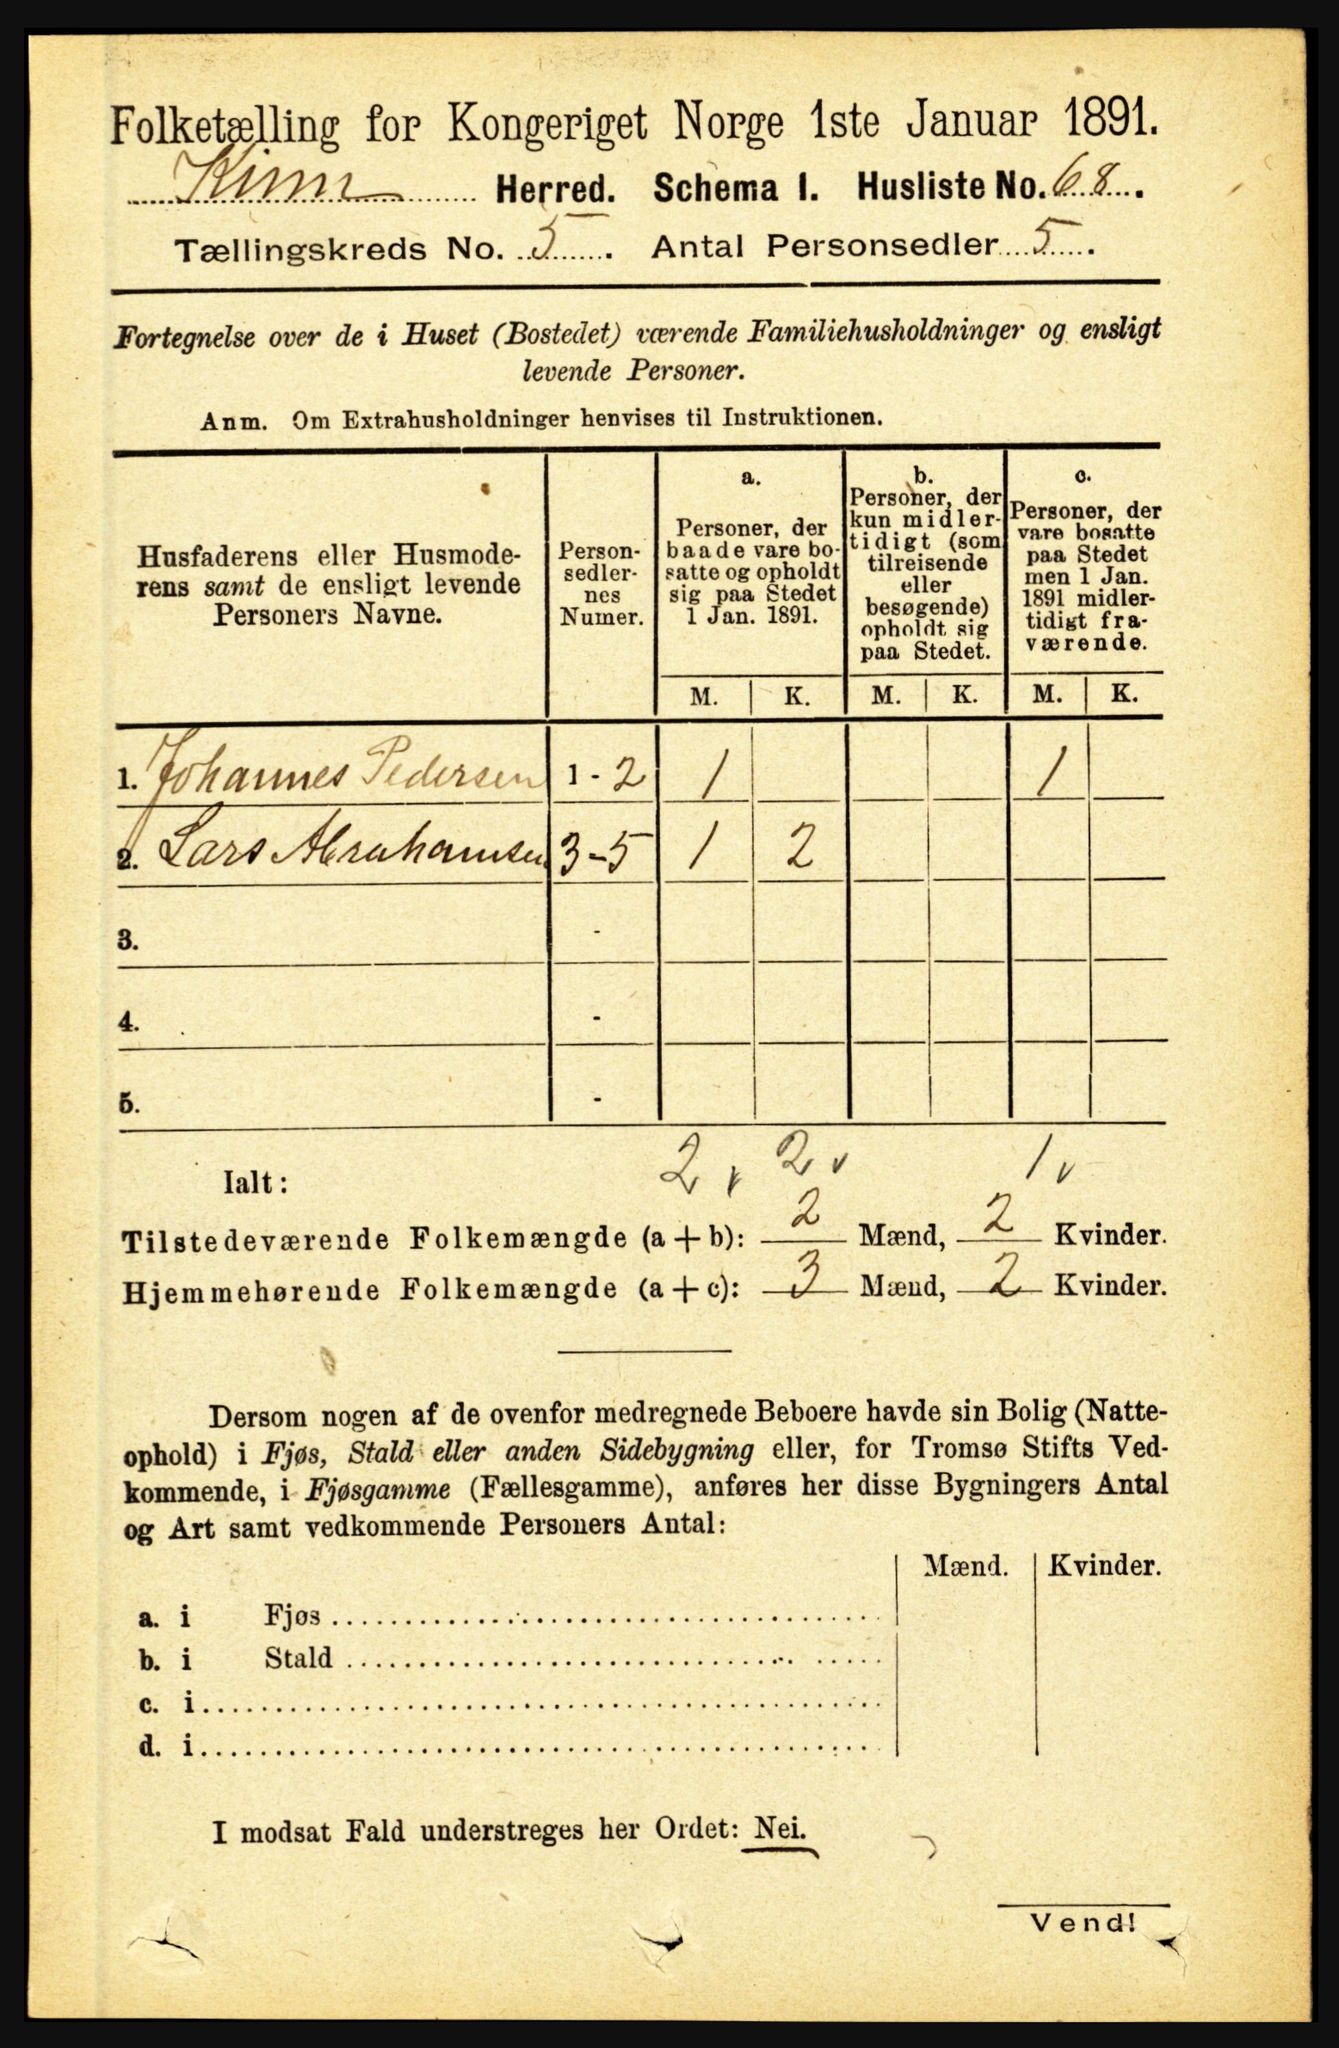 Folketælling for Kongeriget Norge 1ste Januar 1891.
Kinn Herred. Schema 1. Husliste No. 68.
Tællingskreds No. 5. Antal Personsedler 5.
Fortegnelse over de i Huset (Bostedet) værende Familiehusholdninger og ensligt
levende Personer.
Anm. Om Extrahusholdninger henvises til Instruktionen.
Husfaderens eller Husmode-
rens samt de ensligt levende
Personers Navne.
Person-
sedler-
nes
Numer.
a.
Personer, der
baade vare bo-
satte og opholdt
sig paa Stedet
1 Jan. 1891.
b.
Personer, der
kun midler-
tidigt (som
tilreisende
eller
besøgende)
opholdt sig
paa Stedet.
c.
Personer, der
vare bosatte
paa Stedet
men 1 Jan.
1891 midler-
tidigt fra-
værende.
M. K. M. K. M. K.
1. Johannes Pedersen 1 - 2 1 1
2. Lars Abrahamsen 3 - 5 1 2
3. -
4. -
5. -
Ialt: 2 v 2 v 1 v
Tilstedeværende Folkemængde (a + b): 2 Mænd, 2 Kvinder.
Hjemmehørende Folkemængde (a + c): 3 Mænd, 2 Kvinder.
Dersom nogen af de ovenfor medregnede Beboere havde sin Bolig (Natte-
ophold) i Fjøs, Stald eller anden Sidebygning eller, for Tromsø Stifts Ved-
kommende, i Fjøsgamme (Fællesgamme), anføres her disse Bygningers Antal
og Art samt vedkommende Personers Antal:
Mænd. Kvinder.
a. i Fjøs
b. i Stald
c. i
d. i
I modsat Fald understreges her Ordet: Nei.
Vend!